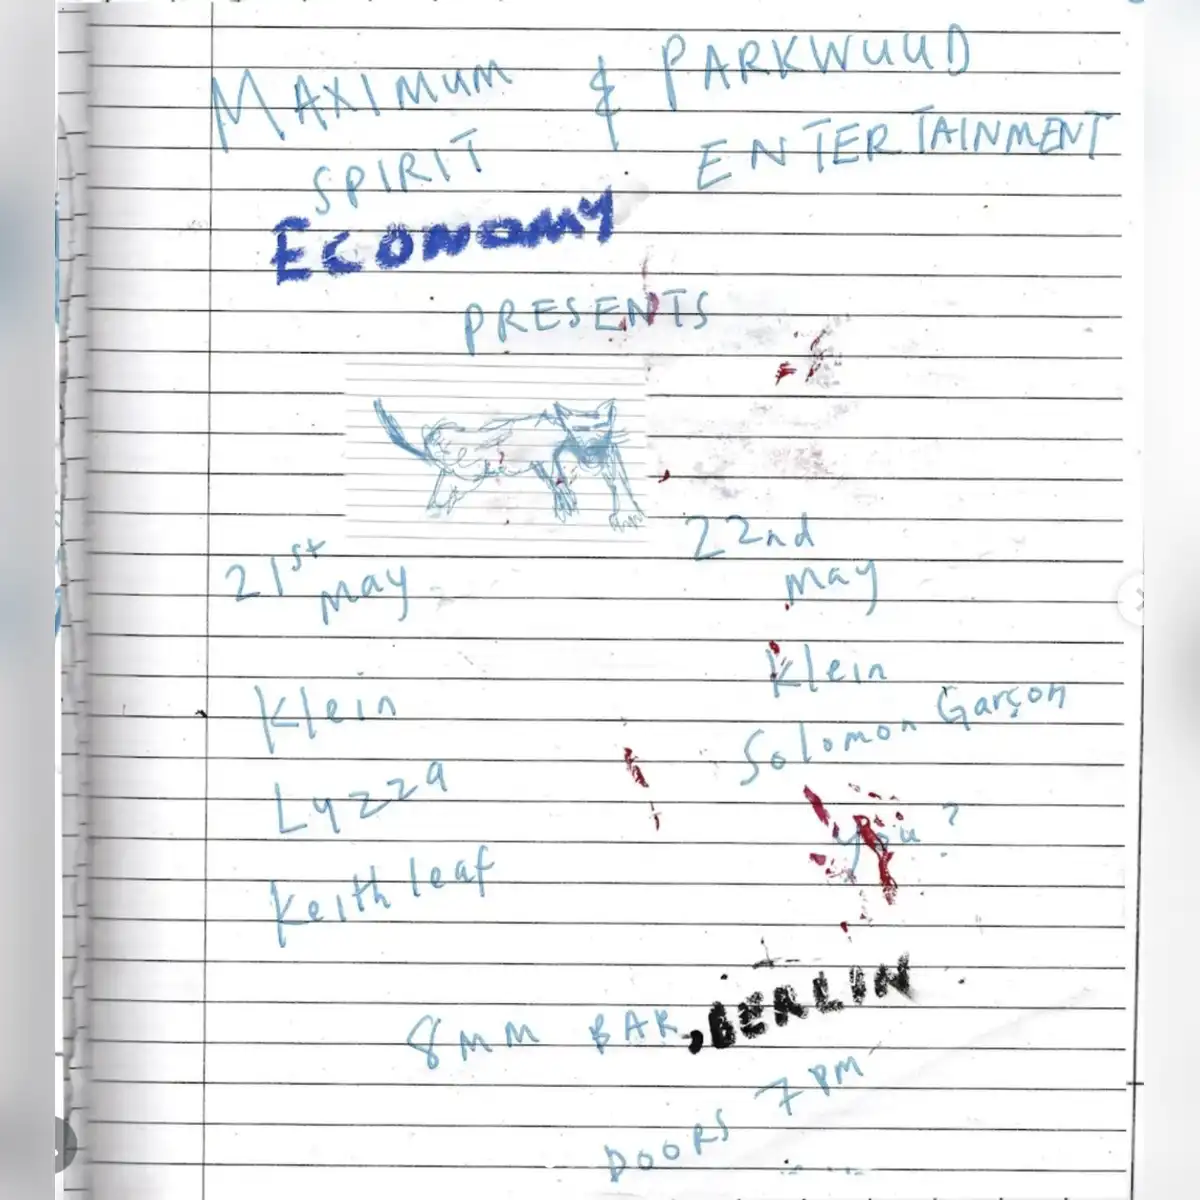 MAXIMUM & PARKWUUD
SPIRIT ENTERTAINMENT
ECONOMY
PRESENTS
21st
May
Klein
Lyzza
Keith leaf
22nd
May
Klein
Solomon Garçon
you?
8MM BAR, BERLIN
DOORS 7PM